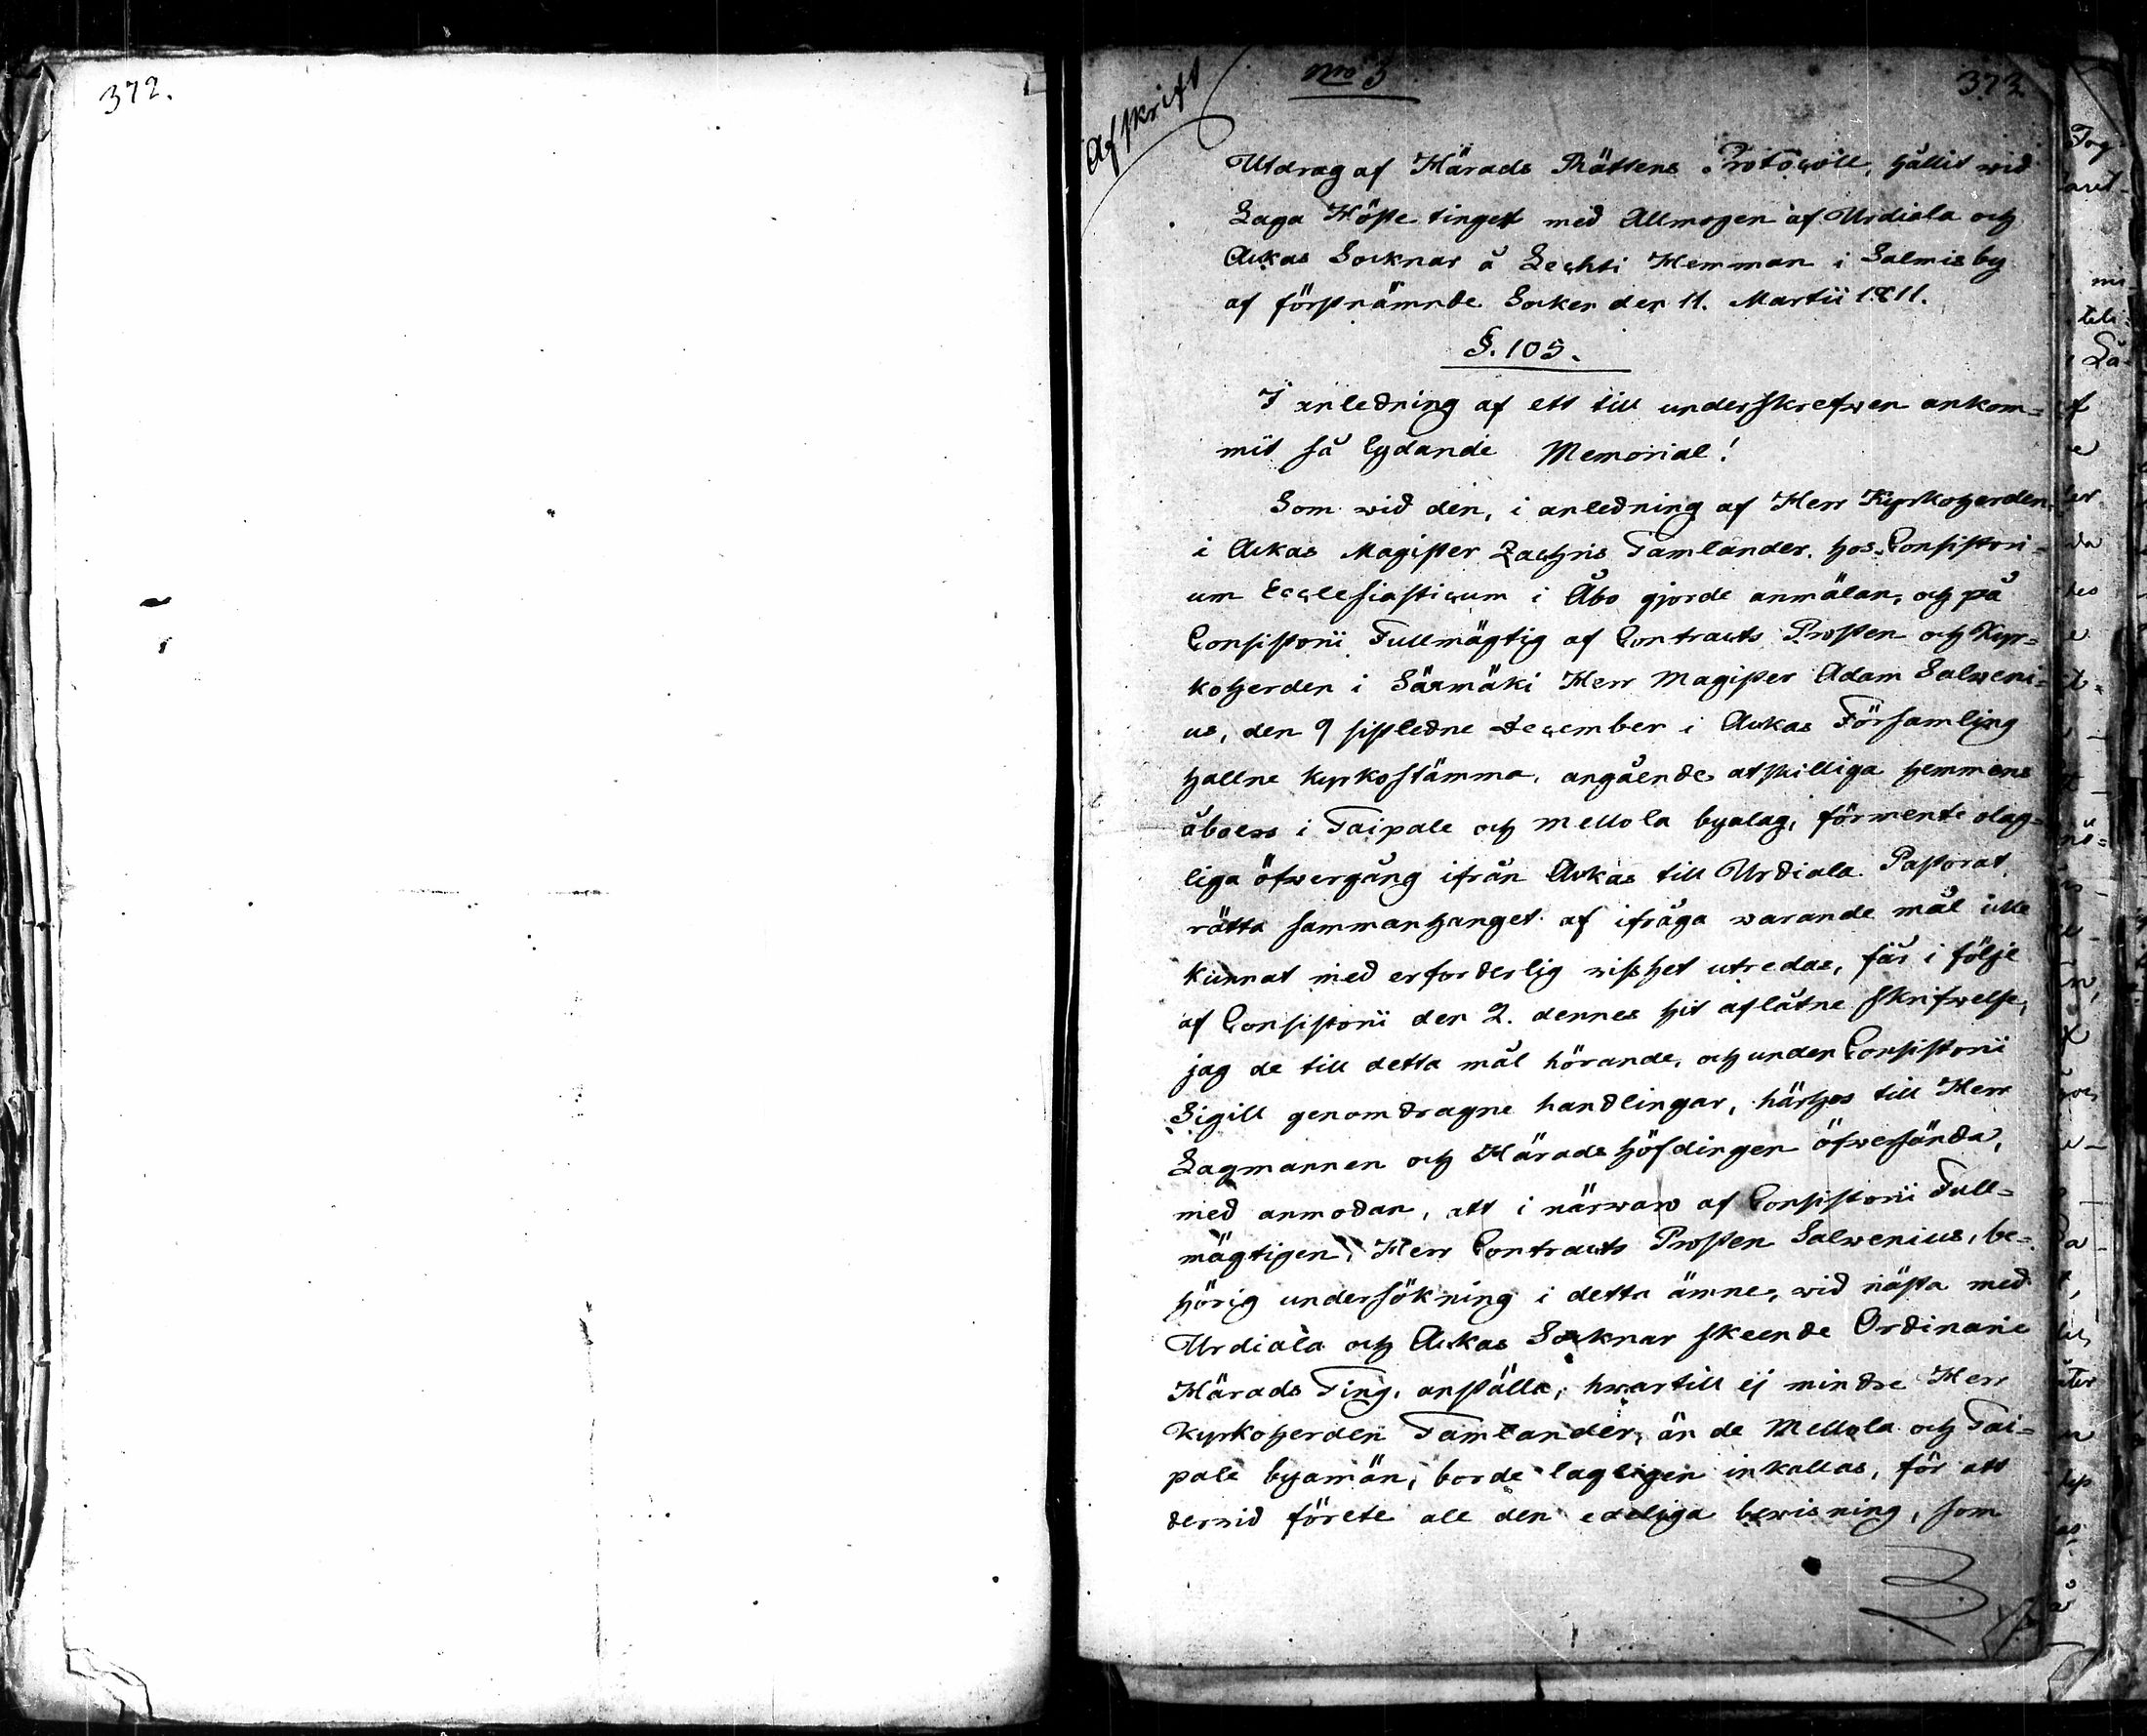 372.
Afskrift
Nro 3
373
Utdrag af Härads Rättens Protocoll, hållit wid
Laga Höste tinget med Allmogen af Urdiala och
Ackas Socknar å Lechti Hemman i Salmis by
af förstnämnde Socken den 11. Martii 1811.
§. 105.
I anledning af ett till underskrefwen ankom=
mit så lydande Memorial!
Som wid den, i anledning af Herr Kyrkoherden
i Ackas Magister Zachris Tamlander, hos Consistori=
um Ecclesiasticum i Åbo gjorde anmälan, och på
Consistorii Fullmägtig af Contracts Prosten och Kyr=
koherden i Säxmäki Herr Magister Adam Salweni=
us, den 9 sistledne December i Ackas Församling
hallne kyrkostämma, angående atskilliga hemmans
åboers i Taipale och Mellola byalag, förmente olag=
liga öfwergång ifrån Ackas till Urdiala Pastorat,
rätta sammanhanget af ifråga warande mål icke
kunnat med erforderlig wisshet utredas, får i följe
af Consistorii den 2. dennes hit aflåtne skrifwelse,
jag de till detta mål hörande, och under Consistorii
Sigill genomdragne handlingar, härhos till Herr
Lagmannen och Härads höfdingen öfwersända,
med anmodan, att i närwaro af Consistorii Full=
mägtigen, Herr Contracts Prosten Salwenius, be=
hörig undersökning i detta ämne, wid nästa med
Urdiala och Ackas Socknar skeende Ordinarie
Härads Ting, anställa, hwartill ej mindre Herr
Kyrkoherden Tamlander, än de Mellola och Tai=
pale byamän, borde lagligen inkallas, för att
derwid förete all den edeliga bewisning, som